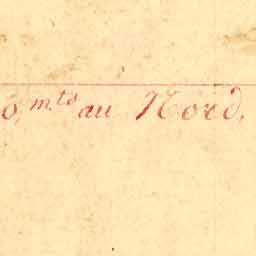 0,mts au Nord,